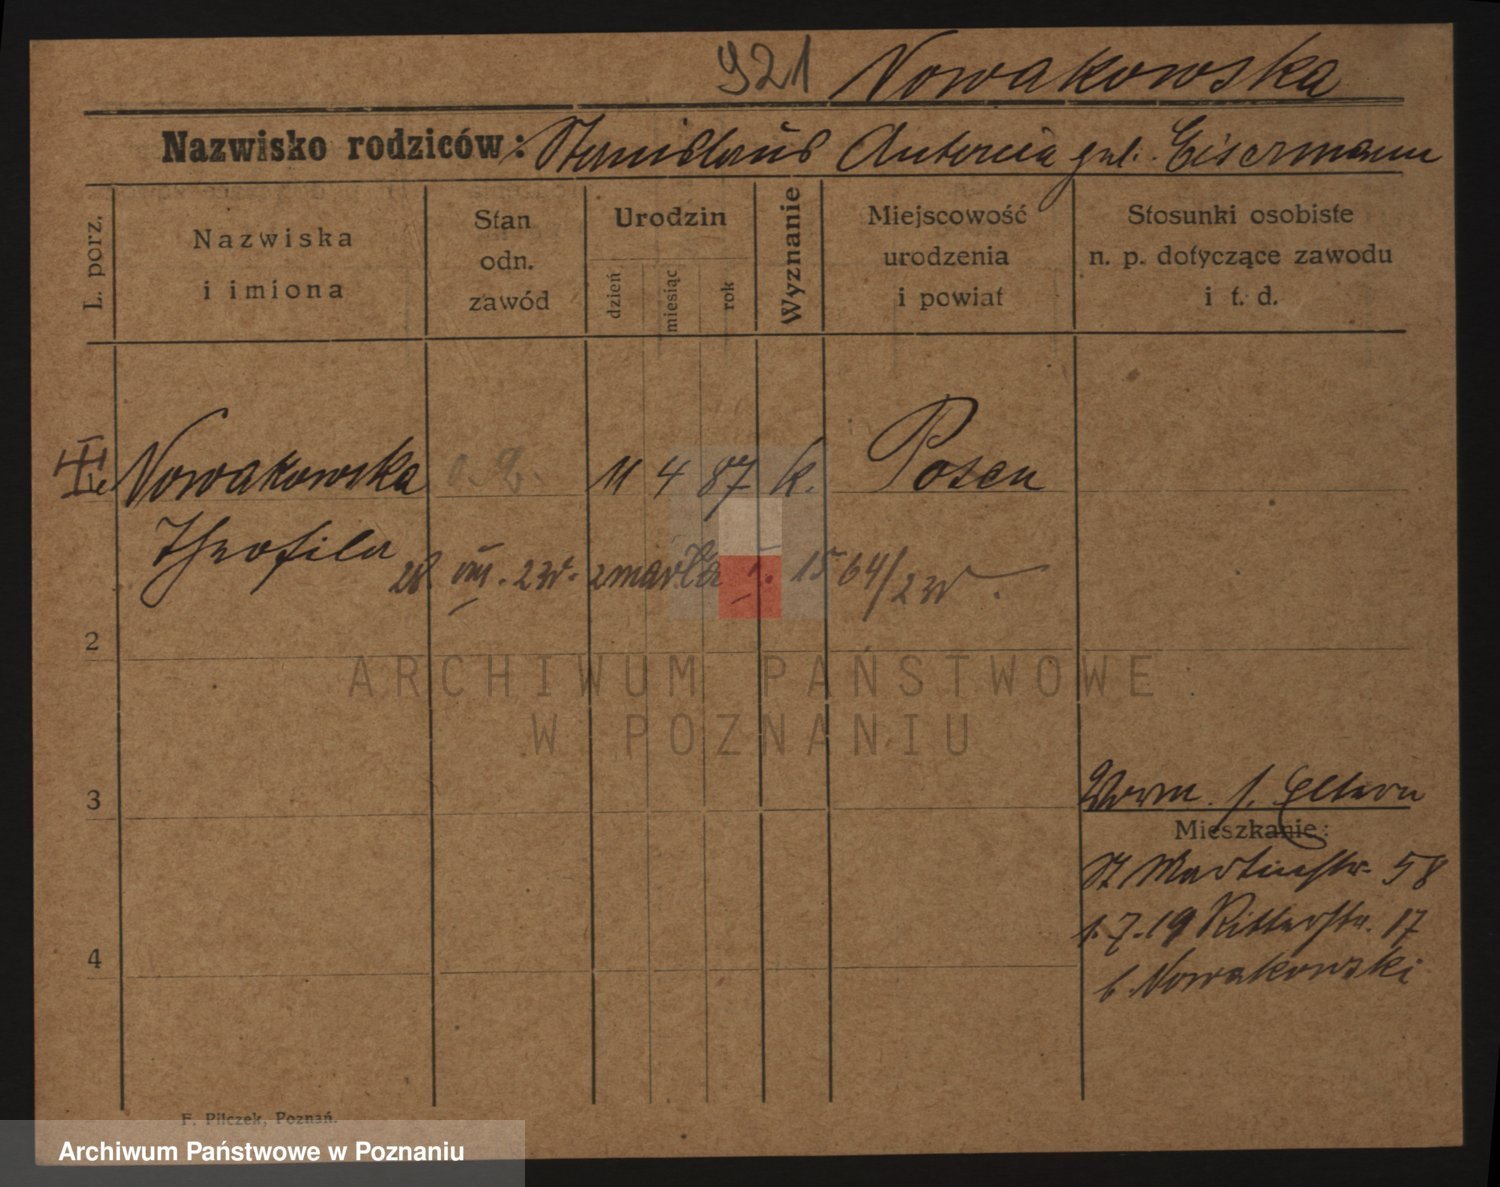 921 Nowakowska
Nazwisko rodziców: Stanislaus Antonia gel. Eisermann
L. porz.
Nazwiska
i imiona
Stan
odn.
zawód
Urodzin
dzień
miesiąc
rok
Wyznanie
Miejscowość
urodzenia
i powiat
Stosunki osobiste
n. p. dotyczące zawodu
i t. d.
Nowakowska 11 4 87 k. Posen
Theofila
28. VIII. 23r. zmarła 1564/23r.
2
3
4
Worm. s. Eltern
Mieszkanie:
St Martinstr. 58
1.7.19 Ritterstr. 17
b. Nowakowski
F. Pilczek, Poznań.
ARCHIWUM PAŃSTWOWE
W POZNANIU
Archiwum Państwowe w Poznaniu